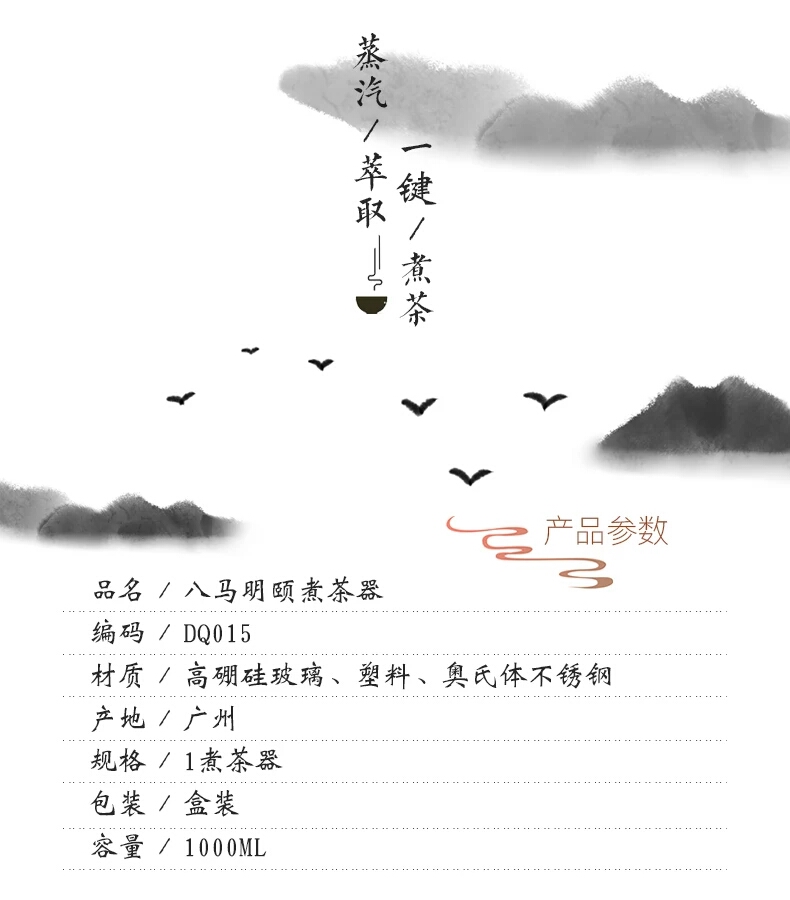 一键/煮茶
蒸汽/萃取
产品参数
品名 / 八马明颐煮茶器
编码 / DQ015
材质 / 高硼硅玻璃、塑料、奥氏体不锈钢
产地 / 广州
规格 / 1煮茶器
包装 / 盒装
容量 / 1000ML